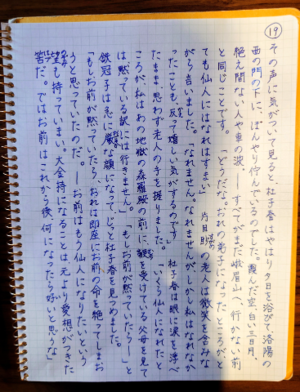 ⑲
その声に気がついて見ると、杜子春はやはり夕日を浴びて、洛陽の
西の門の下に、ぼんやり佇んでいるのでした。霞んだ空、白い三日月、
絶え間ない人や車の波、――すべてがまだ峨眉山へ、行かない前
と同じことです。「どうだな。おれの弟子になったところが、と
ても仙人にはなれはすまい」片目眇の老人は微笑を含みな
がら言いました。「なれません。なれませんが、しかし私はなれなか
ったことも、反って嬉しい気がするのです」杜子春は眼に涙を浮べ
たまま、思わず老人の手を握りました。「いくら仙人になれたと
ころが、私はあの地獄の森羅殿の前に、鞭を受けている父母を見て
は、黙っている訳には行きません。」「もしお前が黙っていたら――」と
鉄冠子は急に厳な顔になって、じっと杜子春を見つめました。
「もしお前が黙っていたら、おれは即座にお前の命を絶ってしまお
うと思っていたのだ。――お前はもう仙人になりたいという
望も持っていまい。大金持になることは、元より愛想がつきた
筈だ。ではお前はこれから後、何になったら好いと思うな」